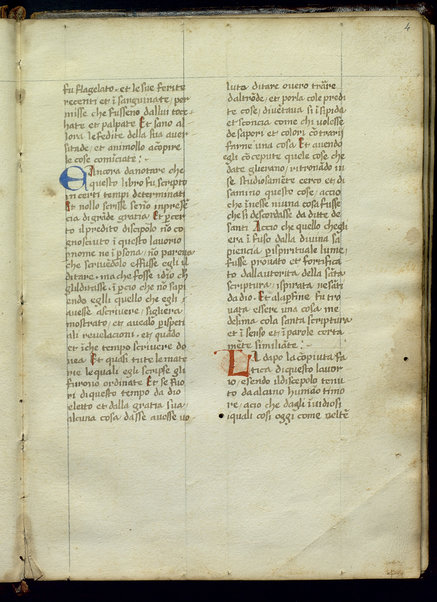 4
fu flagelato. et le sue ferite
recenti et ĩ sanguinate, per
misse che fusseno dallui toc
chate et palpate Et sano al
lora le fedite della sua aver
sitade, et animollo acõpire
le cose comĩciate : ~
Ancora danotare che
questo libro fu scripto
incerti tempi determinati
Et nollo scrisse senõ inprese
cia digrãde gratia, Et p certo
il predito discepolo nõ co
gnosciuto ĩ questo lavorio
p nome ne ĩ psona, nõ parona
che scriuẽdolo e fusse egli il
ditare, ma che fosse idio ch
gli ditasse, ĩ pcio che nõ sapi
endo eglli quello che egli
auesse ascrivere, sigliera
mostrato, et auealo p isperi
ali reuelacioni, et quãdo
et ĩche tempo scrivere do
uea Et quasi tute le mate
rie le quali egli scripse gli
furonio ordinate Et se fuo
ri di questo tempo da dio
eletto et dalla gratia sua,
alcuna cosa dasse auesse uo
luto ditare overo trare
d'altrõde, et porla cole pred
te cose, diuẽtava si ĩsipida
et sconcia come chi volesse
de sapori et colori cõtrari
farne una cosa Et auendo
egli cõcepute quele cose che
date gluerano, ritronado in
se studiosamẽte cerco et di
samino questo cose, accio
che ĩ nesse niuna cosa fusse
che si descordasse da ditte de
santi Accio che quello che gli
era ĩ fuso dalla diuina sa
piencia p ispirituale lume,
fusse prouato et fortificato
dall autorita della sãta
scriptura, ispirata ne sãti
da dio. Et alapfine fu tro
uata essere una cosa me
delima cola santa scriptura
et ĩ senso et ĩ parole certa
mẽte similiãte : ~
La dapo la cõpiuta fa
tica di questo lavor
io, esendo il discepolo tenu
to da alcuno humão timo
re, acio che dagli ĩuidiosi
iquali cosi oggi come nelte